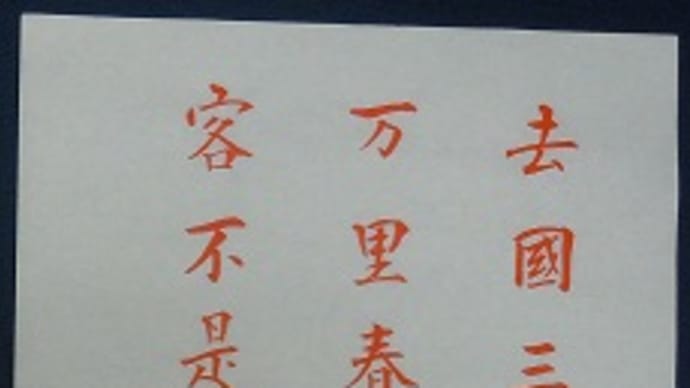 去國三
万里春
客不是